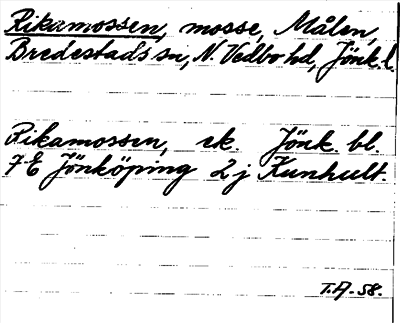 Rikamossen, mosse, Målen,
Bredestads sn, N. Vedbo hd, Jönk. l.
Rikamossen, ek. Jönk. bl.
7 E Jönköping 2 j Kunhult.
T.A-58.